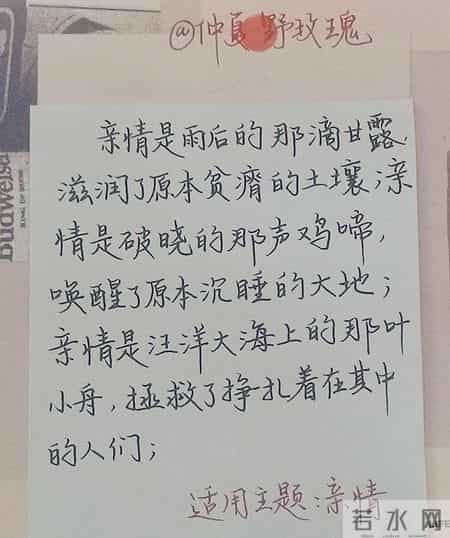 @仲夏野玫瑰
Budweiser
亲情是雨后的那滴甘露,
滋润了原本贫瘠的土壤;亲
情是破晓的那声鸡啼,
唤醒了原本沉睡的大地;
亲情是汪洋大海上的那叶
小舟,拯救了挣扎着在其中
的人们;
适用主题:亲情
若水网